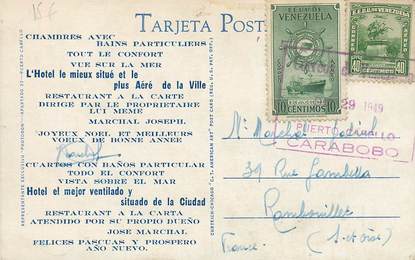 15€
TARJETA POST
CHAMBRES AVEC
BAINS PARTICULIERS
TOUT LE CONFORT
VUE SUR LA MER
L'Hotel le mieux situé et le
plus Aéré de la Ville
RESTAURANT A LA CARTE
DIRIGE PAR LE PROPRIETAIRE
LUI MEME
MARCHAL JOSEPH.
"JOYEUX NOEL ET MEILLEURS
VOEUX DE BONNE ANNEE
CUARTOS CON BAÑOS PARTICULAR
TODO EL CONFORT
VISTA SOBRE EL MAR
Hotel el mejor ventilado y
situado de la Ciudad
RESTAURANT A LA CARTA
ATENDIDO POR SU PROPIO DUEÑO
JOSE MARCHAL
FELICES PASCUAS Y PROSPERO
AÑO NUEVO.
EE.UU. DE
VENEZUELA
CENTIMOS 10
EE.UU. DE VENEZUELA
40 40
29 1949
PUERTO
CARABOBO
Mr Marchal
39 Rue Gambetta
Rambouillet
(S. et Oise)
France